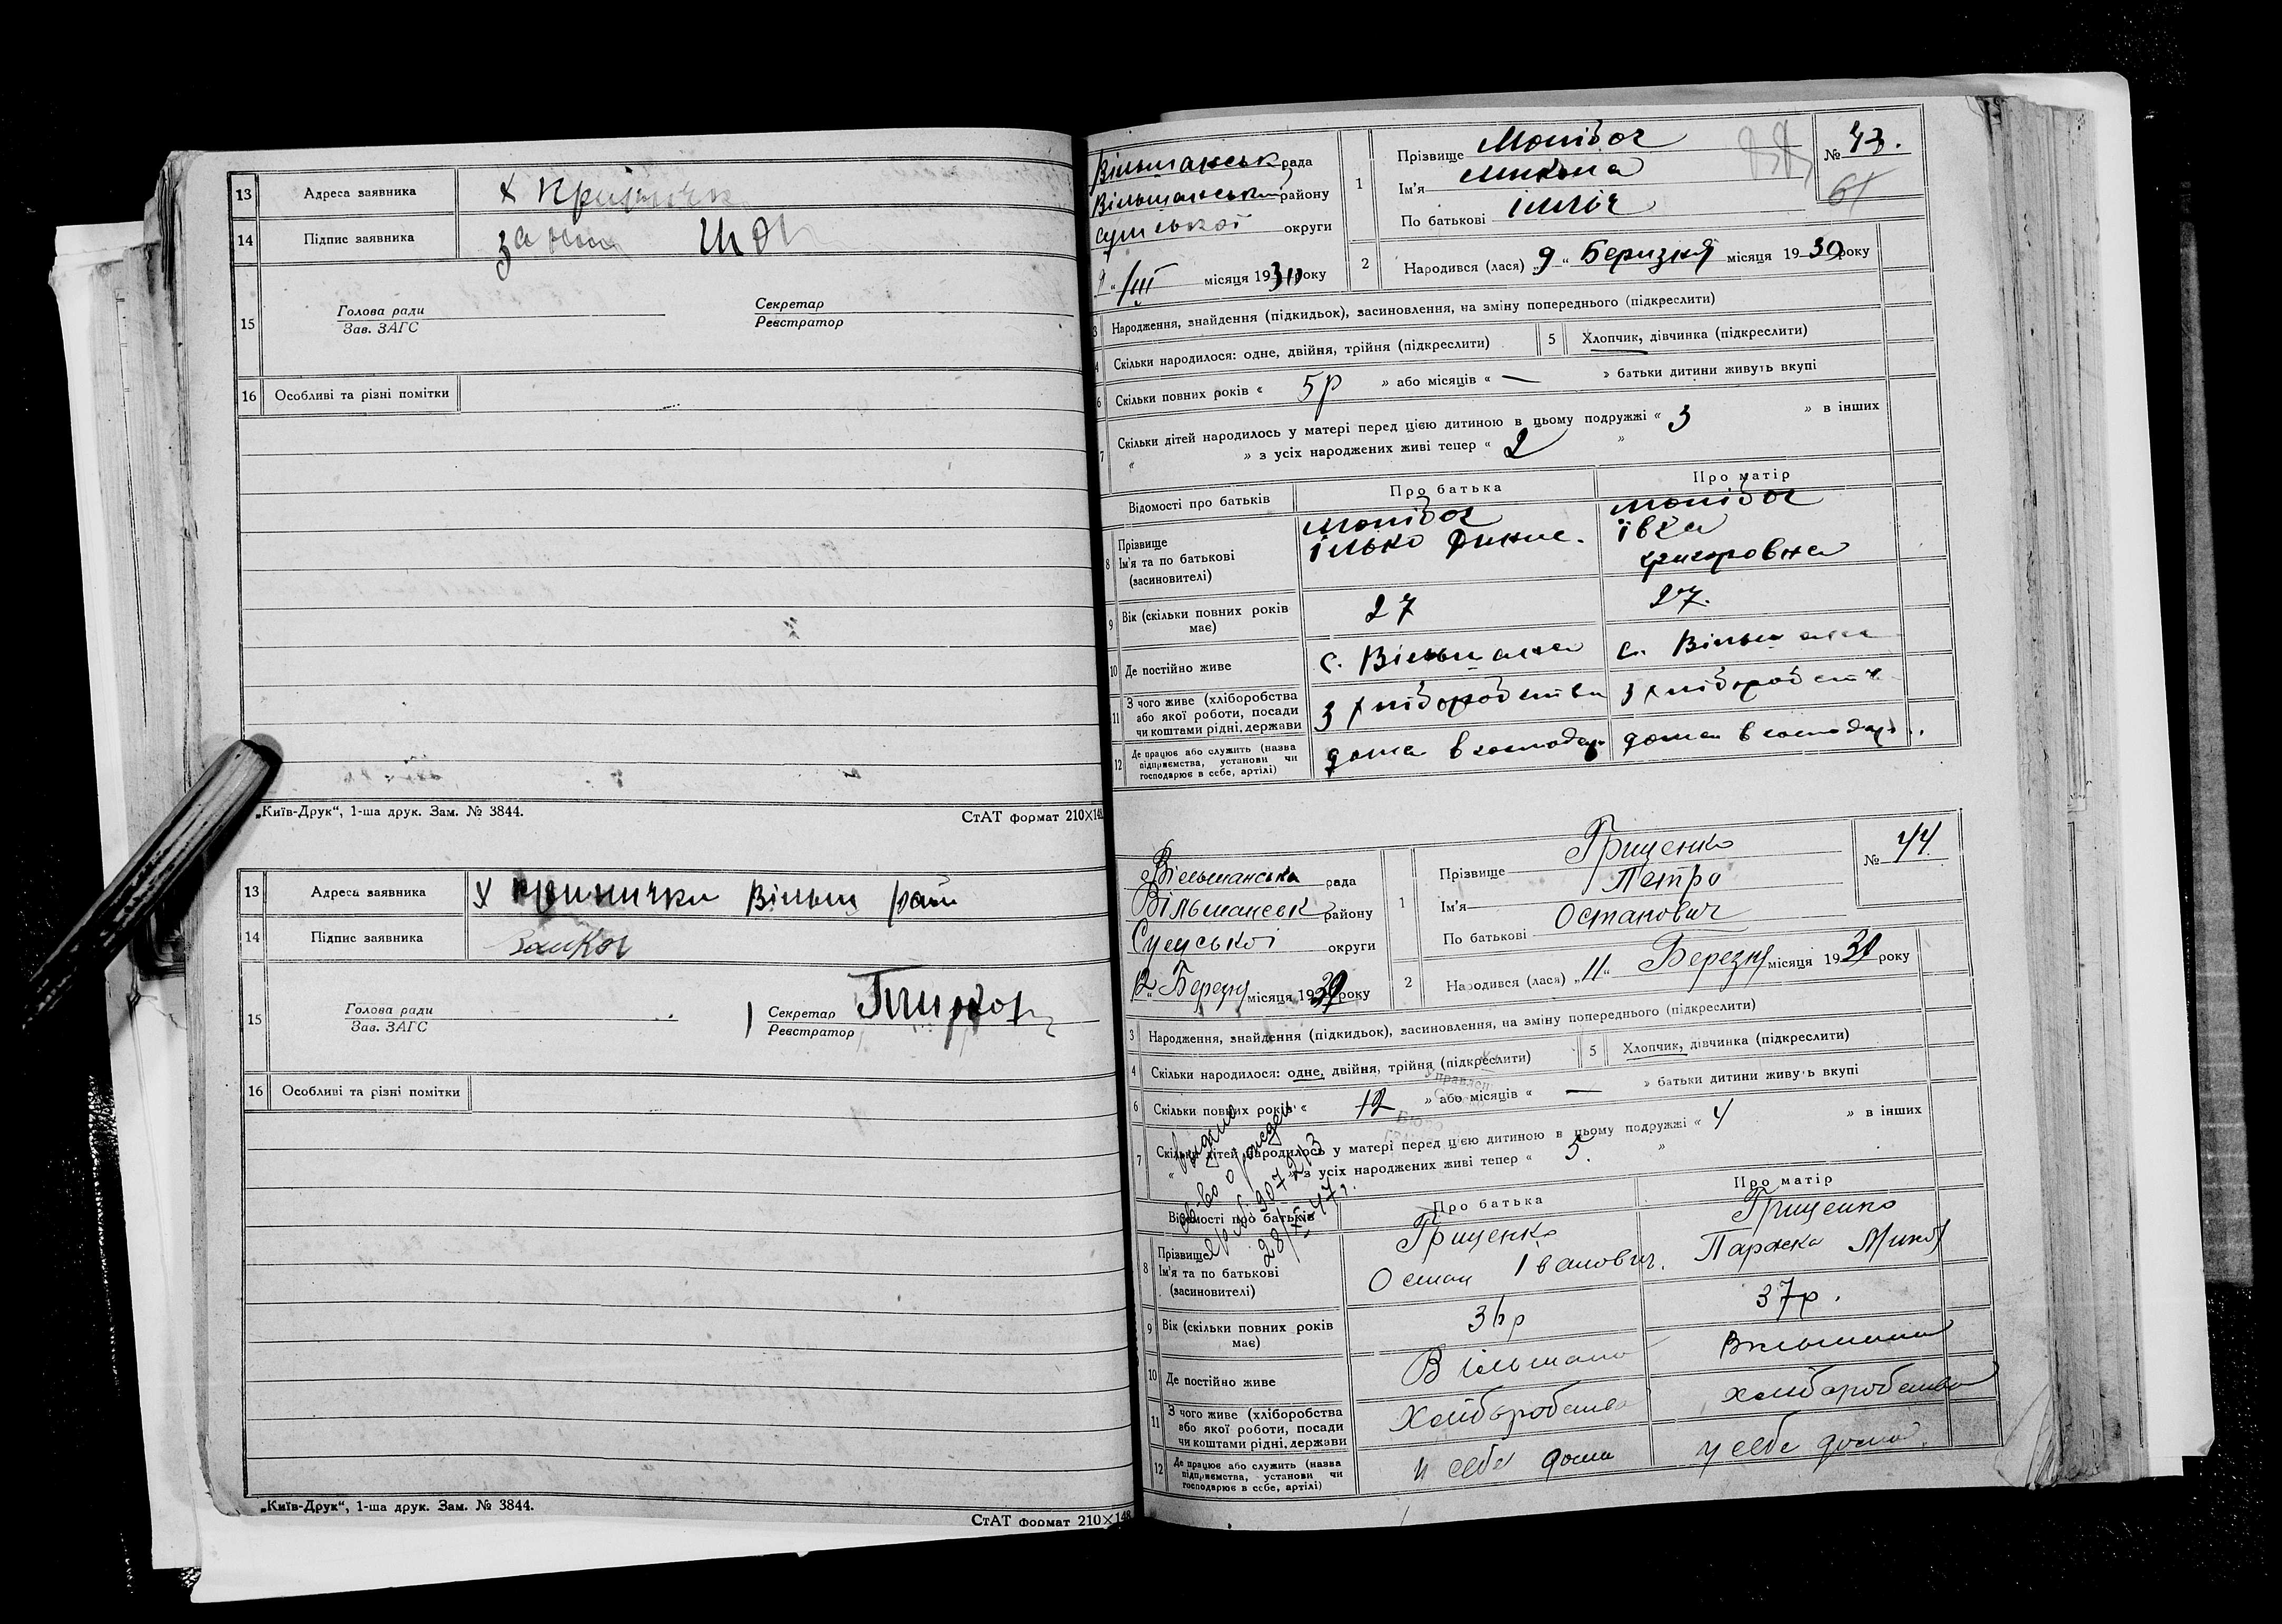 13 Адреса заявника х
14 Підпис заявника за
Голова ради
Зав. ЗАГС
Секретар
Реєстратор
15
16 Особливі та різні помітки
„Київ-Друк“, 1-ша друк. Зам. № 3844.
СтАТ формат 210×148
13 Адреса заявника х Кринички Вільш рай
14 Підпис заявника
Голова ради
Зав. ЗАГС
Секретар
Реєстратор
15
16 Особливі та різні помітки
„Київ-Друк“, 1-ша друк. Зам. № 3844.
СтАТ формат 210×148
Вільшанськ рада
Вільшанський району
Сумської округи
9 „ III місяця 1930 року
1 Прізвище
Ім'я Микола
По батькові Ілліч
№ 43.
61
2 Народився (лася) „9“ Березня місяця 1930 року
3 Народження, знайдення (підкидьок), засиновлення, на зміну попереднього (підкреслити)
4 Скільки народилося: одне, двійня, трійня (підкреслити) 5 Хлопчик, дівчинка (підкреслити)
6 Скільки повних років « 5 р » або місяців « — » батьки дитини живуть вкупі
7 Скільки дітей народилось у матері перед цією дитиною в цьому подружжі « 3 » в інших
« » з усіх народжених живі тепер « 2 »
Відомості про батьків Про батька Про матір
8 Прізвище
Ім'я та по батькові Ілько Івка
(засиновителі) Григоровна
9 Вік (скільки повних років має) 27 27.
10 Де постійно живе с. Вільшана с. Вільшана
11 З чого живе (хліборобства або якої роботи, посади чи коштами рідні, держави З хліборобства З хліборобств
12 Де працює або служить (назва підприємства, установи чи господарює в себе, артілі) дома в господар дома в господар.
Вільшанська рада
Вільшанськ району
Сумської округи
12 „ Березня місяця 1930 року
1 Прізвище Грищенко
Ім'я Петро
По батькові Остапович
№ 44
2 Народився (лася) „11“ Березня місяця 1930 року
3 Народження, знайдення (підкидьок), засиновлення, на зміну попереднього (підкреслити)
4 Скільки народилося: одне, двійня, трійня (підкреслити) 5 Хлопчик, дівчинка (підкреслити)
6 Скільки повних років « 12 » або місяців « — » батьки дитини живуть вкупі
7 Скільки дітей народилось у матері перед цією дитиною в цьому подружжі « 4 » в інших
« » з усіх народжених живі тепер « 5. »
Відомості про батьків Про батька Про матір
8 Прізвище Грищенко Грищенко
Ім'я та по батькові Остап Іванович. Параска Микол
(засиновителі)
9 Вік (скільки повних років має) 36 р 37 р.
10 Де постійно живе Вільшана Вільшана
11 З чого живе (хліборобства або якої роботи, посади чи коштами рідні, держави Хліборобство хліборобство
12 Де працює або служить (назва підприємства, установи чи господарює в себе, артілі) у себе дома у себе дома.